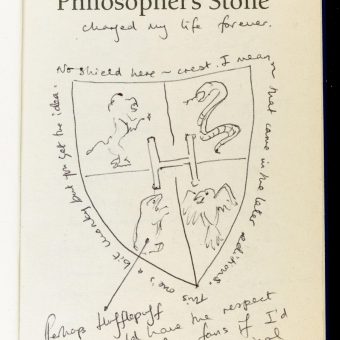 Philosopher's Stone
changed my life forever.
No shield here ~ crest. I mean that came in the later editions. This one is a bit wonky but you get the idea.
H
Perhaps Hufflepuff
have the respect
fans if I'd